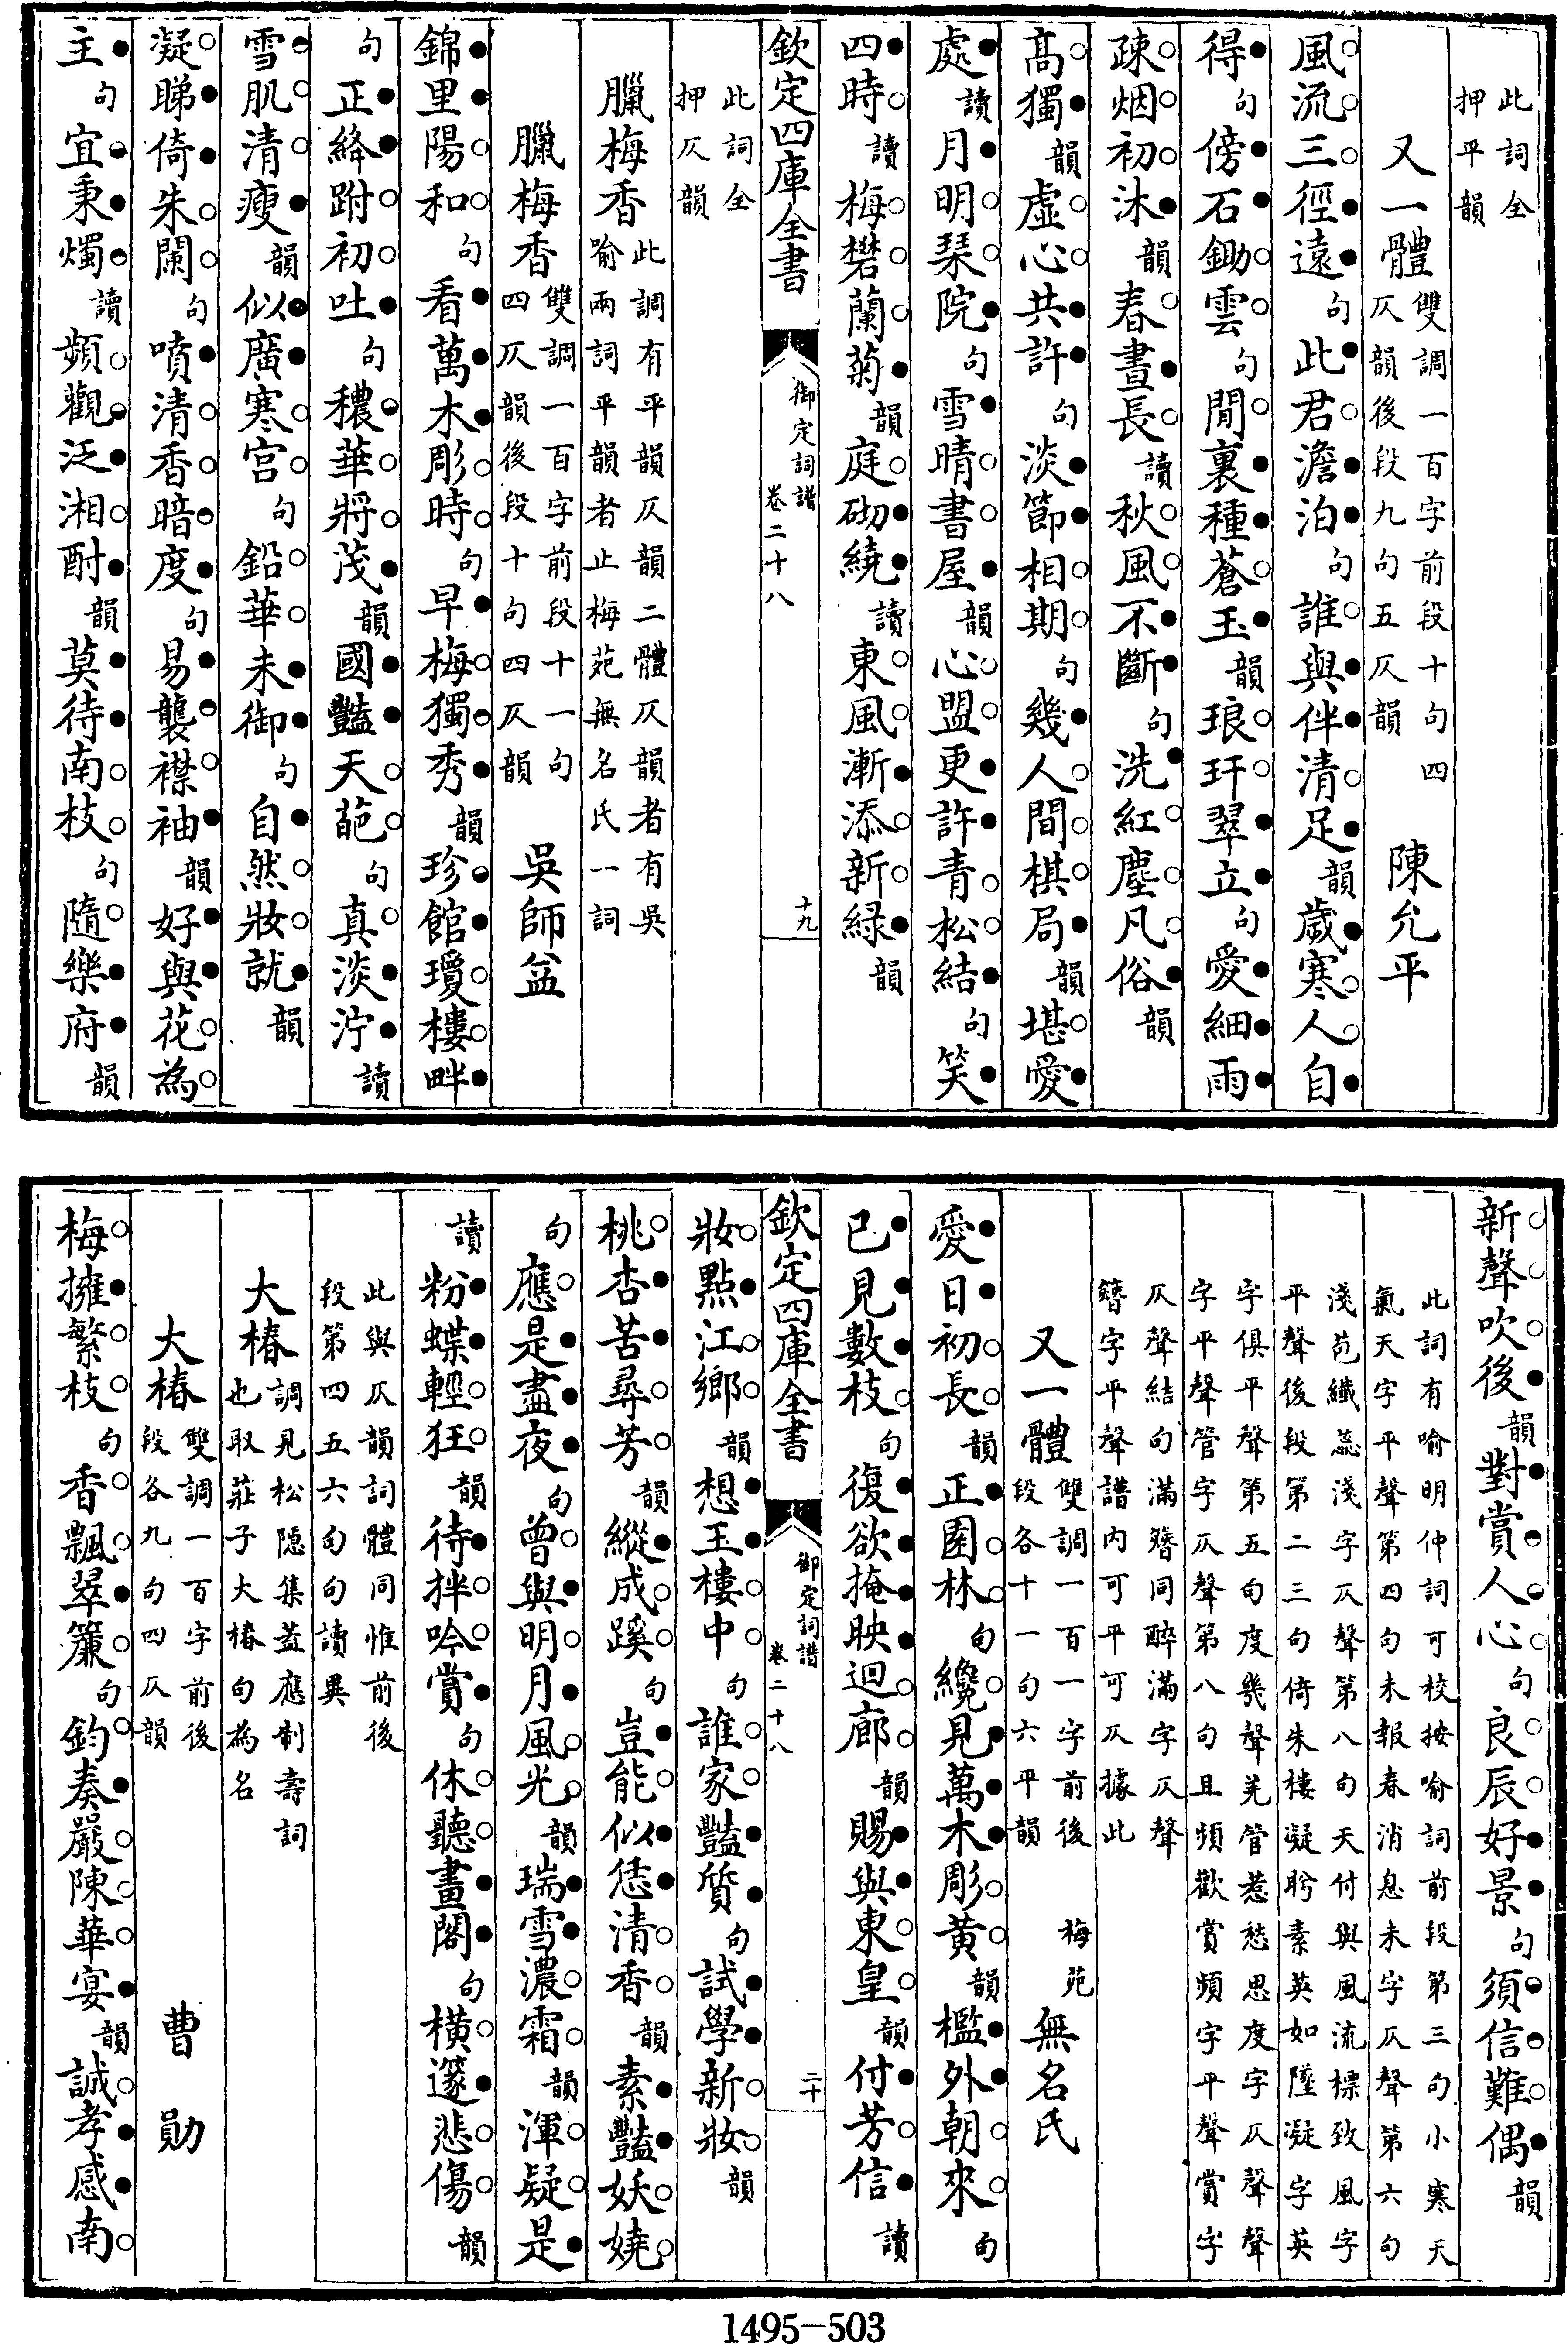 此詞全
押平韻
又一體 雙調一百字前段十句四仄韻後段九句五仄韻 陳允平
風流三徑遠句此君澹泊句誰與伴清足韻歲寒人自
得句傍石鋤雲句閒裏種蒼玉韻琅玕翠立句愛細雨
疎烟初沐韻春晝長讀秋風不斷句洗紅塵凡俗韻
髙獨韻虛心共許句淡節相期句幾人間棋局韻堪愛
處讀月明琴院句雪晴書屋韻心盟更許青松結句笑
四時讀梅礬蘭菊韻庭砌繞讀東風漸添新緑韻
欽定四庫全書 御定詞譜 卷二十八 十九
此詞全
押仄韻
臘梅香 此調有平韻仄韻二體仄韻者有吳喻兩詞平韻者止梅苑無名氏一詞
臘梅香 雙調一百字前段十一句四仄韻後段十句四仄韻 吳師益
錦里陽和句看萬木彫時句早梅獨秀韻珍館瓊樓畔
句正絳跗初吐句穠華將茂韻國豔天葩句真淡泞讀
雪肌清瘦韻似廣寒宫句鉛華未御句自然妝就韻
凝睇倚朱闌句噴清香暗度句易襲襟袖韻好與花為
主句宜秉燭讀頻觀泛湘酎韻莫待南枝句隨樂府韻
新聲吹後韻對賞人心句良辰好景句須信難偶韻
此詞有喻明仲詞可校按喻詞前段第三句小寒天
氣天字平聲第四句未報春消息未字仄聲第六句
淺苞纖蕊淺字仄聲第八句天付與風流標致風字
平聲後段第二三句倚朱樓凝盻素英如墜凝字英
字俱平聲第五句度幾聲羌管惹愁思度字仄聲聲
字平聲管字仄聲第八句且頻歡賞頻字平聲賞字
仄聲結句滿簪同醉滿字仄聲
簪字平聲譜内可平可仄據此
又一體 雙調一百一字前後段各十一句六平韻 梅苑 無名氏
愛日初長韻正園林句纔見萬木彫黄韻檻外朝來句
已見數枝句復欲掩映迴廊韻賜與東皇韻付芳信讀
妝點江鄉韻想玉樓中句誰家豔質句試學新妝韻
欽定四庫全書 御定詞譜 卷二十八 二十
桃杏苦尋芳韻縱成蹊句豈能似恁清香韻素豔妖嬈
句應是盡夜句曾與明月風光韻瑞雪濃霜韻渾疑是
讀粉蝶輕狂韻待拌吟賞句休聽畫閣句横邃悲傷韻
此與仄韻詞體同惟前後
段第四五六句句讀異
大椿 調見松隱集蓋應制壽詞也取莊子大椿句為名
大椿 雙調一百字前後段各九句四仄韻 曹勛
梅擁繁枝句香飄翠簾句鈞奏嚴陳華宴韻誠孝感南
1495-503